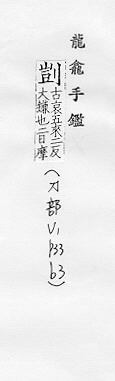 龍龕手鑑
剴
古哀五來二反
大鎌也二曰摩
(刀部 V1 P33 b3)